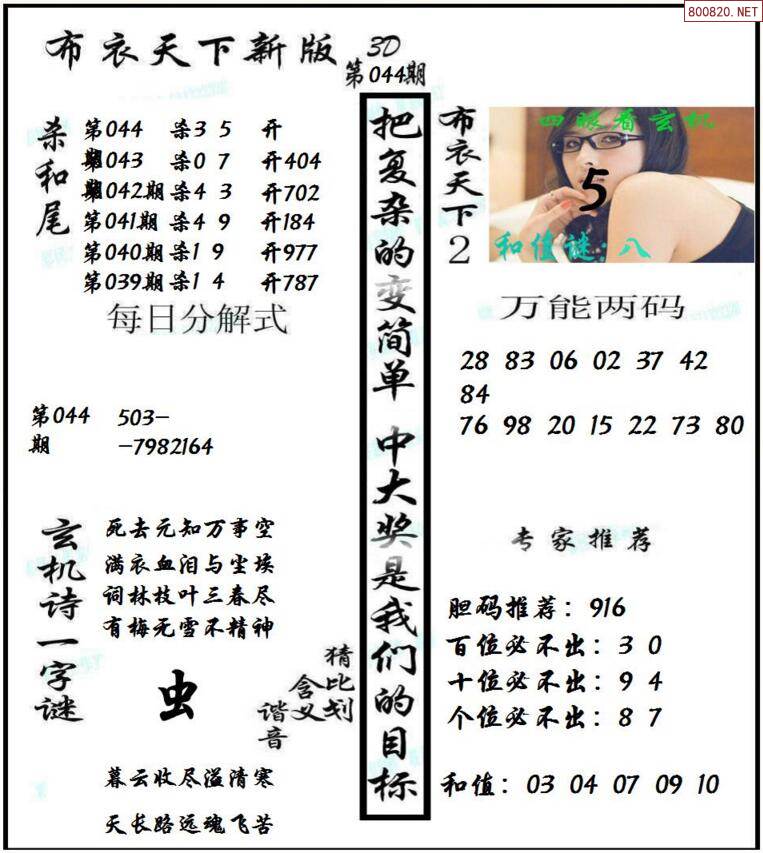 800820.NET
布衣天下新版
3D
第044期
杀和尾
第044期 杀3 5 开
第043期 杀0 7 开404
第042期 杀4 3 开702
第041期 杀4 9 开184
第040期 杀1 9 开977
第039期 杀1 4 开787
每日分解式
第044期
503-
-7982164
玄机诗一字谜
死去元知万事空
满衣血泪与尘埃
词林枝叶三春尽
有梅无雪不精神
虫
猜比划
含义
谐音
暮云收尽溢清寒
天长路远魂飞苦
把复杂的变简单 中大奖是我们的目标
布衣天下2
四眼看玄机
5
和值谜:八
万能两码
28 83 06 02 37 42
84
76 98 20 15 22 73 80
专家推荐
胆码推荐：916
百位必不出：3 0
十位必不出：9 4
个位必不出：8 7
和值：03 04 07 09 10